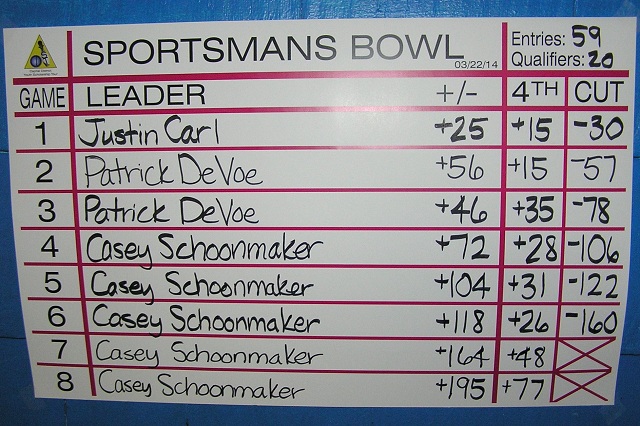 SPORTSMANS BOWL
03/22/14
Entries: 59
Qualifiers: 20
GAME LEADER +/- 4TH CUT
1 Justin Carl +25 +15 -30
2 Patrick DeVoe +56 +15 -57
3 Patrick DeVoe +46 +35 -78
4 Casey Schoonmaker +72 +28 -106
5 Casey Schoonmaker +104 +31 -122
6 Casey Schoonmaker +118 +26 -160
7 Casey Schoonmaker +164 +48
8 Casey Schoonmaker +195 +77